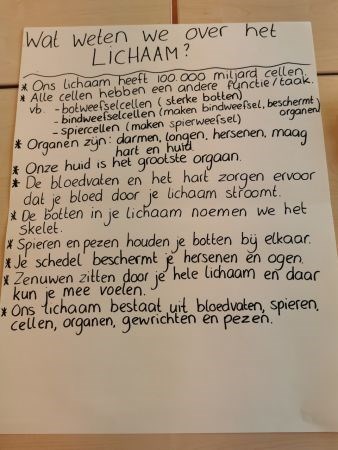 Wat weten we over het
LICHAAM?
* Ons lichaam heeft 100.000 miljard cellen.
* Alle cellen hebben een andere functie/taak.
vb. - botweefselcellen (sterke botten)
- bindweefselcellen (maken bindweefsel, beschermt organen)
- spiercellen (maken spierweefsel)
* Organen zijn: darmen, longen, hersenen, maag
hart en huid
* Onze huid is het grootste orgaan.
* De bloedvaten en het hart zorgen ervoor
dat je bloed door je lichaam stroomt.
* De botten in je lichaam noemen we het
skelet.
* Spieren en pezen houden je botten bij elkaar.
* Je schedel beschermt je hersenen en ogen.
* Zenuwen zitten door je hele lichaam en daar
kun je mee voelen.
* Ons lichaam bestaat uit bloedvaten, spieren,
cellen, organen, gewrichten en pezen.